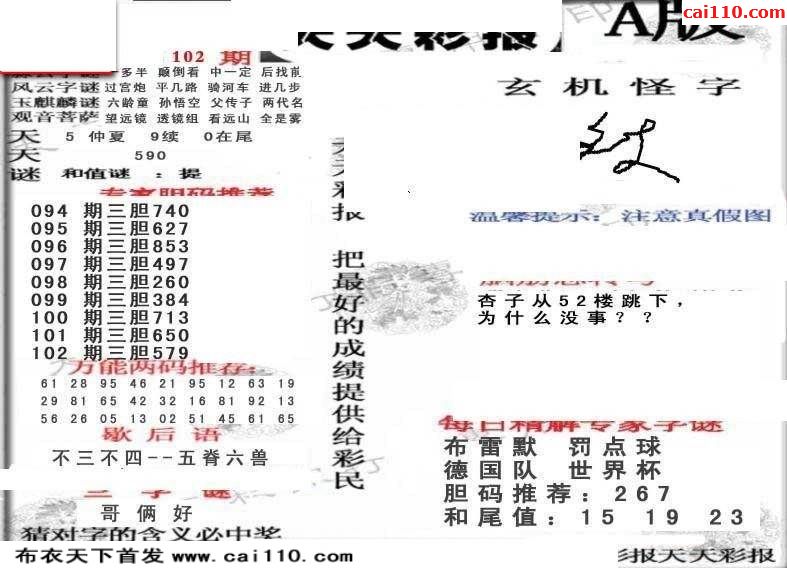 cai110.com
天天彩报
A版
102 期
一多半 颠倒看 中一定 后找前
风云字谜 过宫炮 平几路 骑河车 进几步
玉麒麟谜 六龄童 孙悟空 父传子 两代名
观音菩萨 望远镜 透镜组 看远山 全是雾
天 5 仲夏 9续 0在尾
天 590
谜 和值谜 : 提
专家胆码推荐
094 期三胆740
095 期三胆627
096 期三胆853
097 期三胆497
098 期三胆260
099 期三胆384
100 期三胆713
101 期三胆650
102 期三胆579
万能两码推荐:
61 28 95 46 21 95 12 63 19
29 81 65 42 32 16 81 92 13
56 26 05 13 02 51 45 61 65
歇后语
不三不四--五脊六兽
三字谜
哥俩好
猜对字的含义必中奖
布衣天下首发 www.cai110.com
天天彩报
把最好的成绩提供给彩民
玄机怪字
温馨提示: 注意真假图
杏子从52楼跳下,
为什么没事??
每日精解专家字谜
布雷默 罚点球
德国队 世界杯
胆码推荐: 267
和尾值: 15 19 23
彩报天天彩报